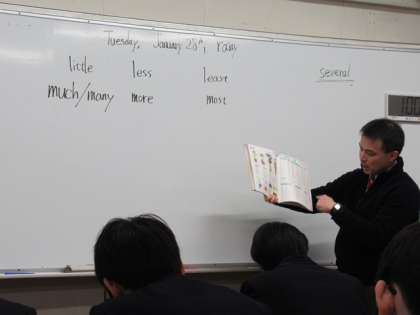 Tuesday, January 28th, rainy
little less least
several
much/many more most